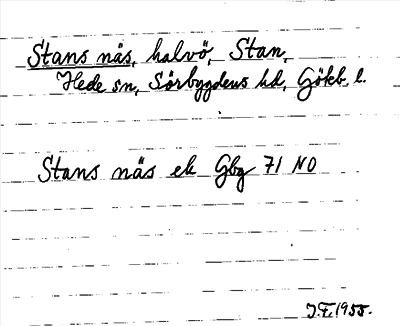 Stans näs, halvö, Stan,
Hede sn, Sörbygdens hd, Gökb. l.
Stans näs ek Gbg 71 NO
J.F. 1955.